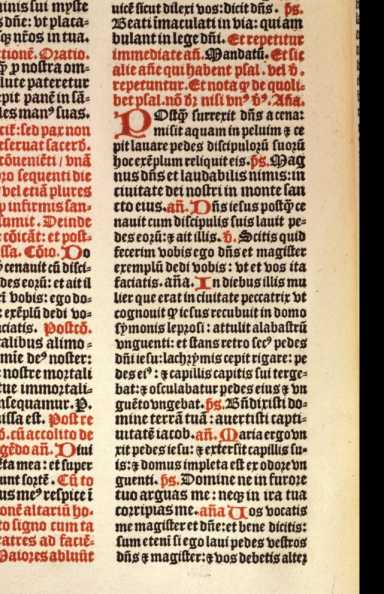 inis sui myste
s dñe: vt placa-
q̄ nr̄os in tua.
Oratio.
nostra om-
lute pateretur
epit panē in sā-
les man⁹ suas.
cit: sed pax non
seruat sacerd.
cōueniēti / vnā
ro sequenti die
vel etiā plures
p infirmis san-
sumit. Deinde
cōicāt: et post-
ssa. Cōio. Do
cenauit cū disci-
des eorū: et ait il
vobis: ego do-
exēplū dedi vo-
ciatis. Postcō.
talibus alimo-
mīe de⁹ noster:
nostre mortali
tue immortali-
nsequamur. P.
uissa est. Post re
cū accolito de
gēdo añ. Diui
eta mea: et super
unt sortē. Cū to
us me⁹ respice i
onē altariū ho-
to signo cum ta
ratres ad faciē-
Maiores abluūt
uicē sicut dilexi vos: dicit dñs. p̄s.
Beati immaculati in via: qui am
bulant in lege dñi. Et repetitur
immediate añ. Mandatū. Et sic
alie añe qui habent psal. vel v̄.
repetuntur. Et nota q̄ de quoli-
bet psal. nō dr̄ nisi vn⁹ v̄⁹. Aña.
POstq̄ surrexit dñs a cena:
misit aquam in peluim ⁊ ce
pit lauare pedes discipulorū suorū
hoc exēplum reliquit eis. p̄s. Mag
nus dñs et laudabilis nimis: in
ciuitate dei nostri in monte san
cto eius. añ. Dñs iesus postq̄ ce
nauit cum discipulis suis lauit pe-
des eorū: ⁊ ait illis. v̄. Scitis quid
fecerim vobis ego dñs et magister
exemplū dedi vobis: vt et vos ita
faciatis. aña. In diebus illis mu
lier que erat in ciuitate peccatrix vt
cognouit q̄ iesus recubuit in domo
symonis leprosi: attulit alabastrū
vnguenti: et stans retro sec⁹ pedes
dñi iesu: lachrymis cepit rigare: pe
des ei⁹: ⁊ capillis capitis sui terge-
bat: ⁊ osculabatur pedes eius ⁊ vn
guēto vngebat. p̄s. Bñdixisti do-
mine terrā tuā: auertisti capti-
uitatē iacob. añ. Maria ergo vn
xit pedes iesu: ⁊ extersit capillis su-
is: ⁊ domus impleta est ex odore vn
guenti. p̄s. Domine ne in furore
tuo arguas me: neq̄ in ira tua
corripias me. aña Uos vocatis
me magister et dñe: et bene dicitis:
sum etenī si ego laui pedes vestros
dñs ⁊ magister: ⁊ vos debetis alter